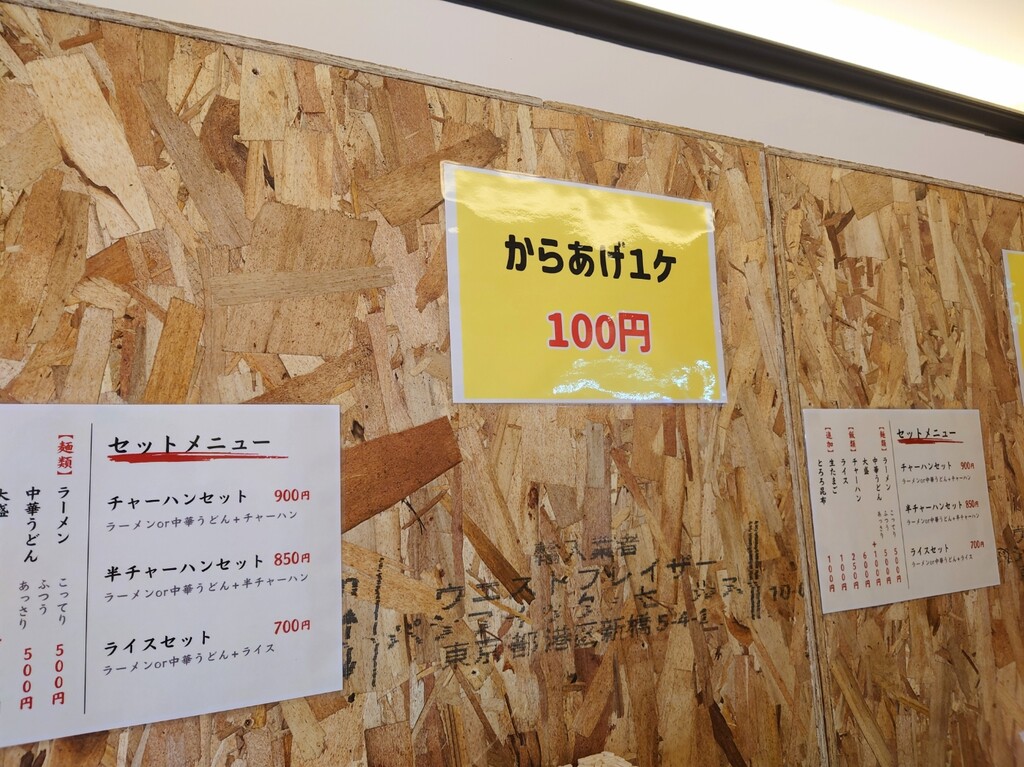 からあげ1ケ
100円
【麺類】
ラーメン こってり ふつう 500円
中華うどん あっさり 500円
大盛
セットメニュー
チャーハンセット 900円
ラーメンor中華うどん+チャーハン
半チャーハンセット 850円
ラーメンor中華うどん+半チャーハン
ライスセット 700円
ラーメンor中華うどん+ライス
輸入業者
ウエストフレイザー
東京都港区新橋5-4-2
セットメニュー
チャーハンセット 900円
ラーメンor中華うどん+チャーハン
半チャーハンセット 850円
ラーメンor中華うどん+半チャーハン
ライスセット 700円
ラーメンor中華うどん+ライス
【麺類】
ラーメン こってり ふつう 500円
中華うどん あっさり 500円
大盛 +100円
【飯類】
チャーハン
ライス
【追加】
生たまご
とろろ昆布